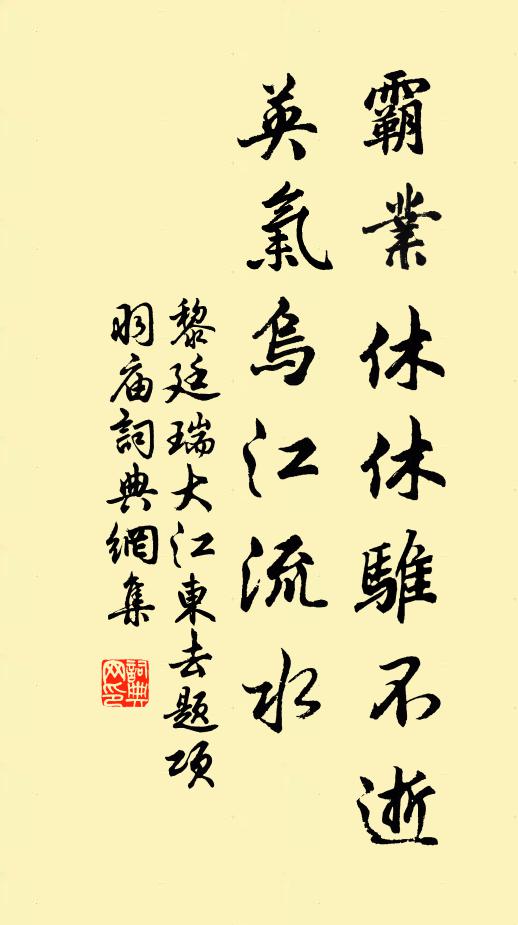 霸業休休騅不逝
英氣烏江流水
黎廷瑞大江東去題項
羽庙詞典網集
詞典网印